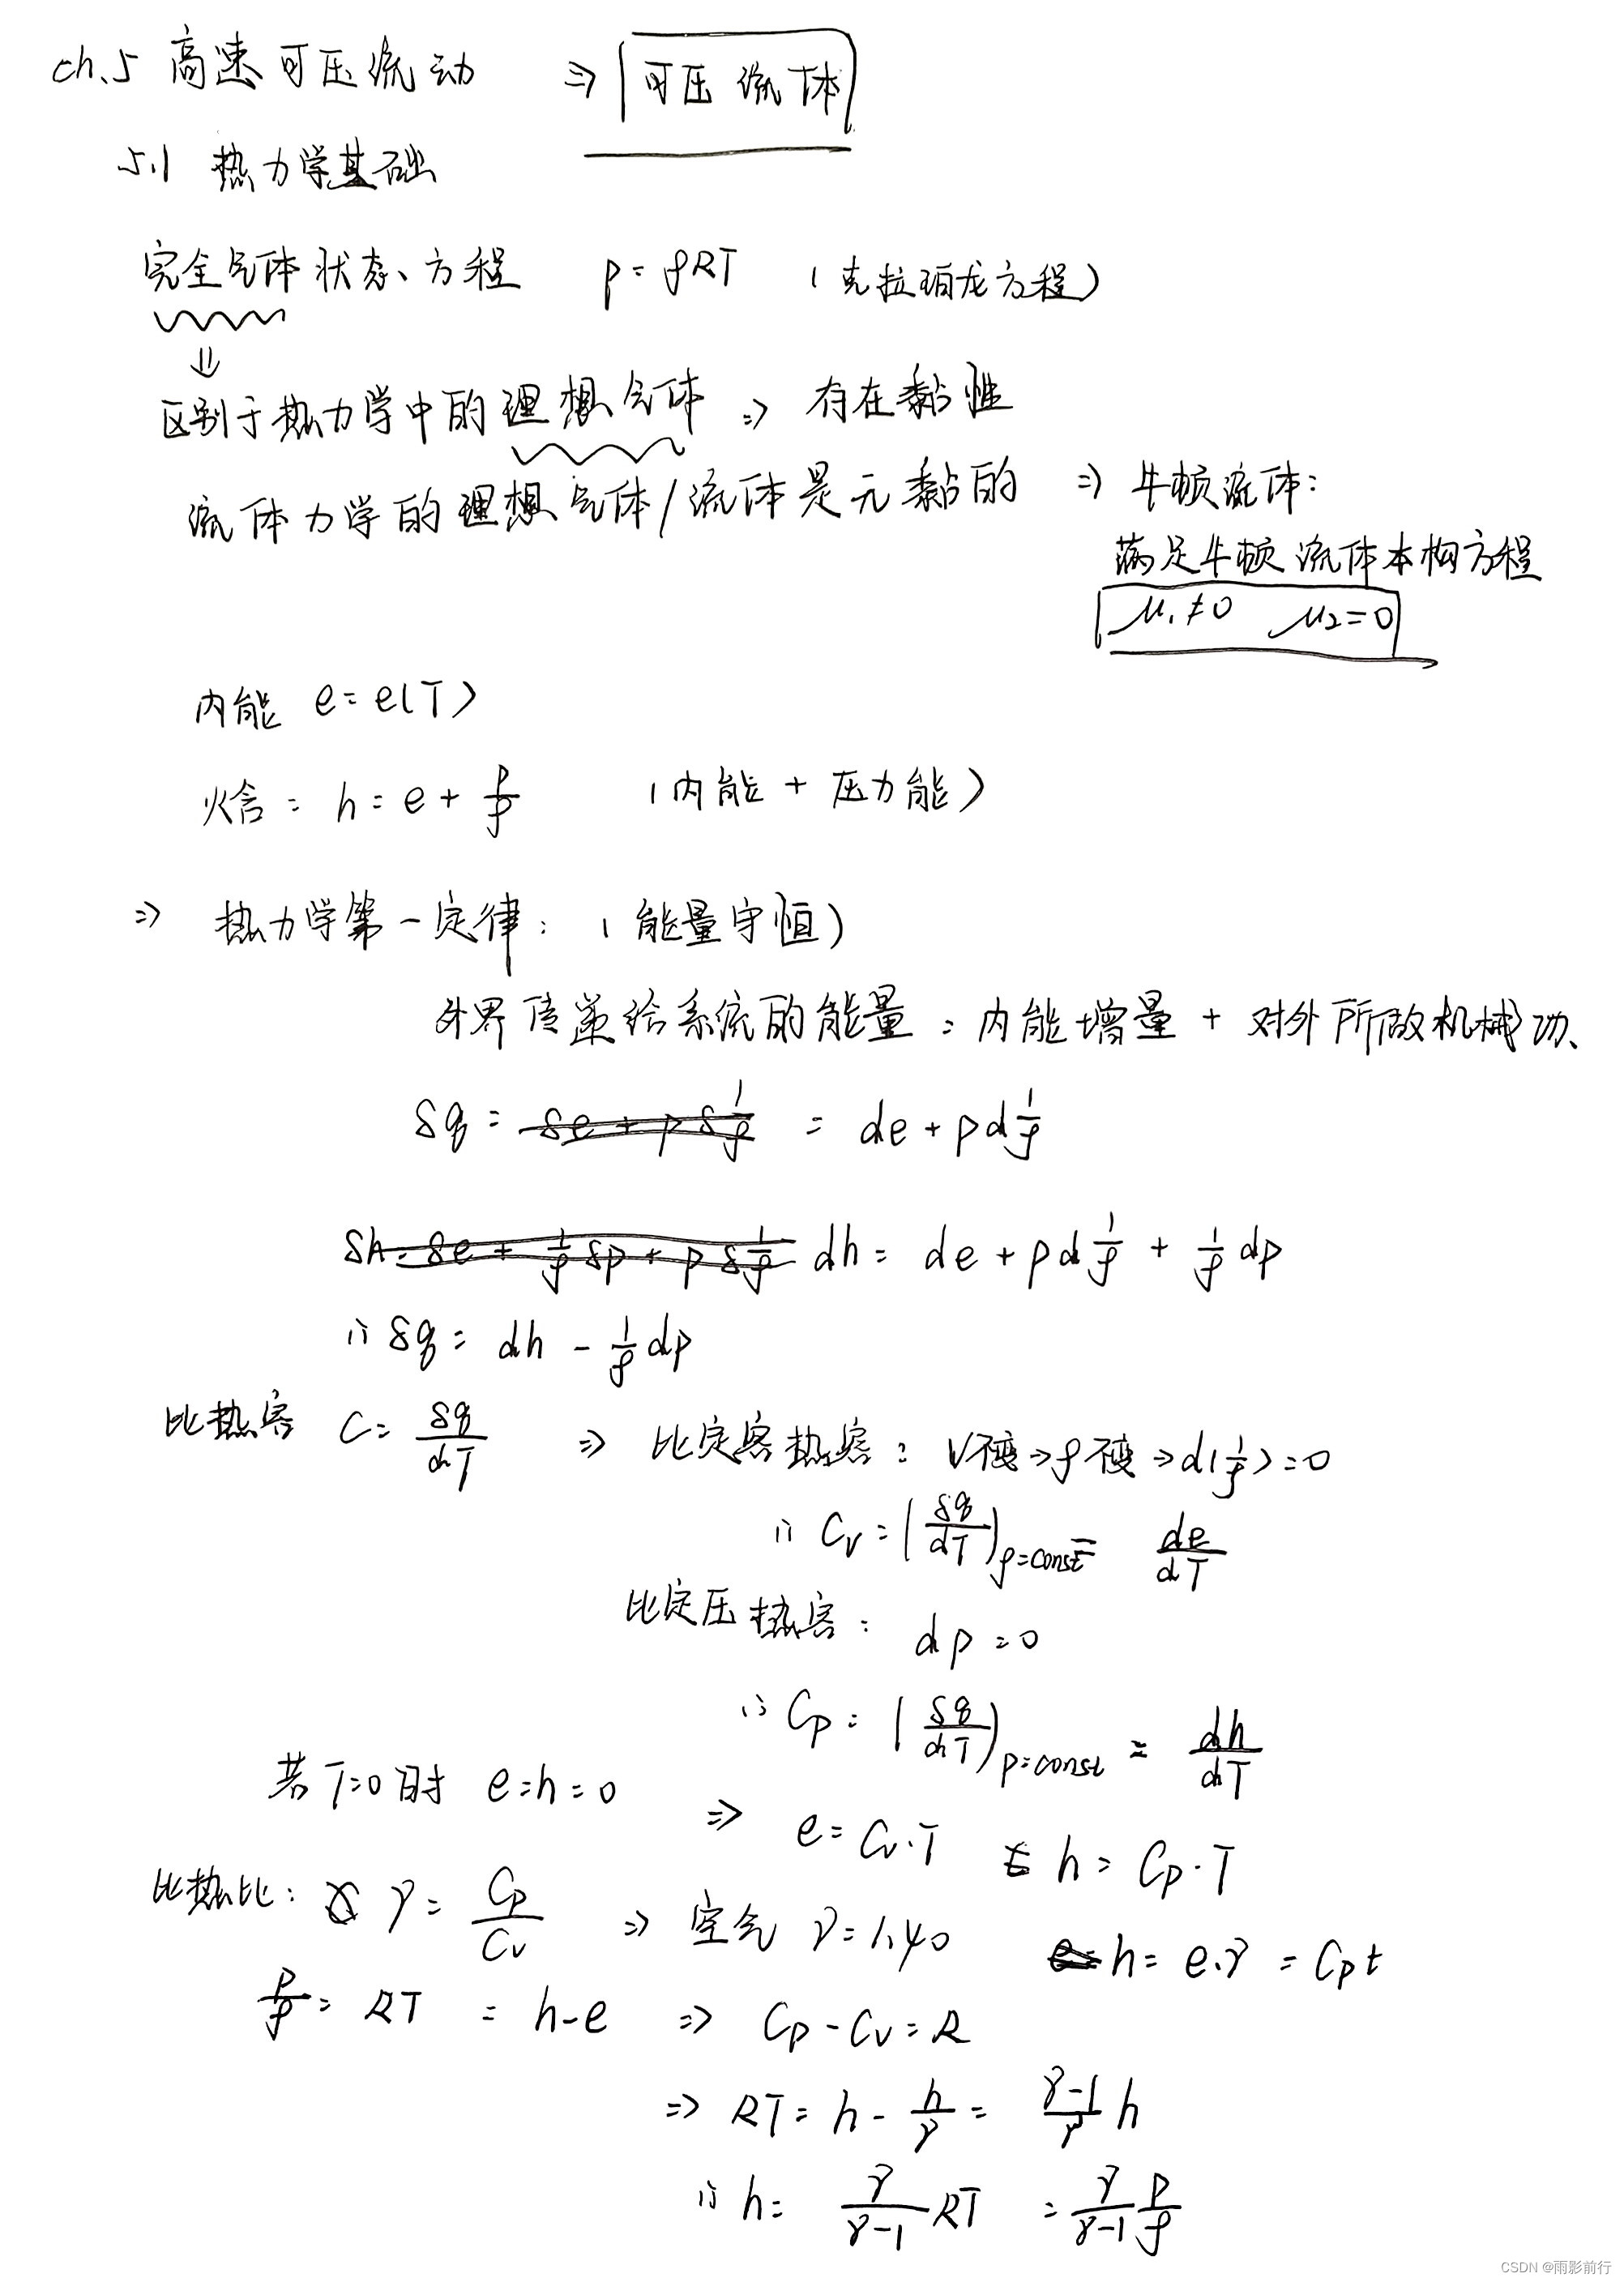 ch.5 高速可压流动 ⇒ 可压流体
5.1 热力学基础
完全气体状态方程 p = ρRT (克拉珀龙方程)
⇓
区别于热力学中的理想气体 ⇒ 存在黏性
流体力学的理想气体/流体是无黏的 ⇒ 牛顿流体:
满足牛顿流体本构方程
μ₁≠0 μ₂=0
内能 e = e(T)
火含: h = e + p/ρ (内能 + 压力能)
⇒ 热力学第一定律: (能量守恒)
外界传递给系统的能量 = 内能增量 + 对外所做机械功、
δq = δe + p δ1/ρ = de + p d1/ρ
δh = δe + 1/ρ δp + p δ1/ρ dh = de + p d1/ρ + 1/ρ dp
∴ δq = dh - 1/ρ dp
比热容 C = δq/dT ⇒ 比定容热容: V不变→ρ不变→d(1/ρ)=0
∴ Cv = (δq/dT)ρ=const = de/dT
比定压热容: dp = 0
∴ Cp = (δq/dT)p=const = dh/dT
若T=0时 e=h=0 ⇒ e = Cv·T h = Cp·T
比热比: γ = Cp/Cv ⇒ 空气 γ=1.40 h = e·γ = Cpt
p/ρ = RT = h-e ⇒ Cp - Cv = R
⇒ RT = h - h/γ = γ-1/γ h
∴ h = γ/γ-1 RT = γ/γ-1 p/ρ
CSDN @雨影前行